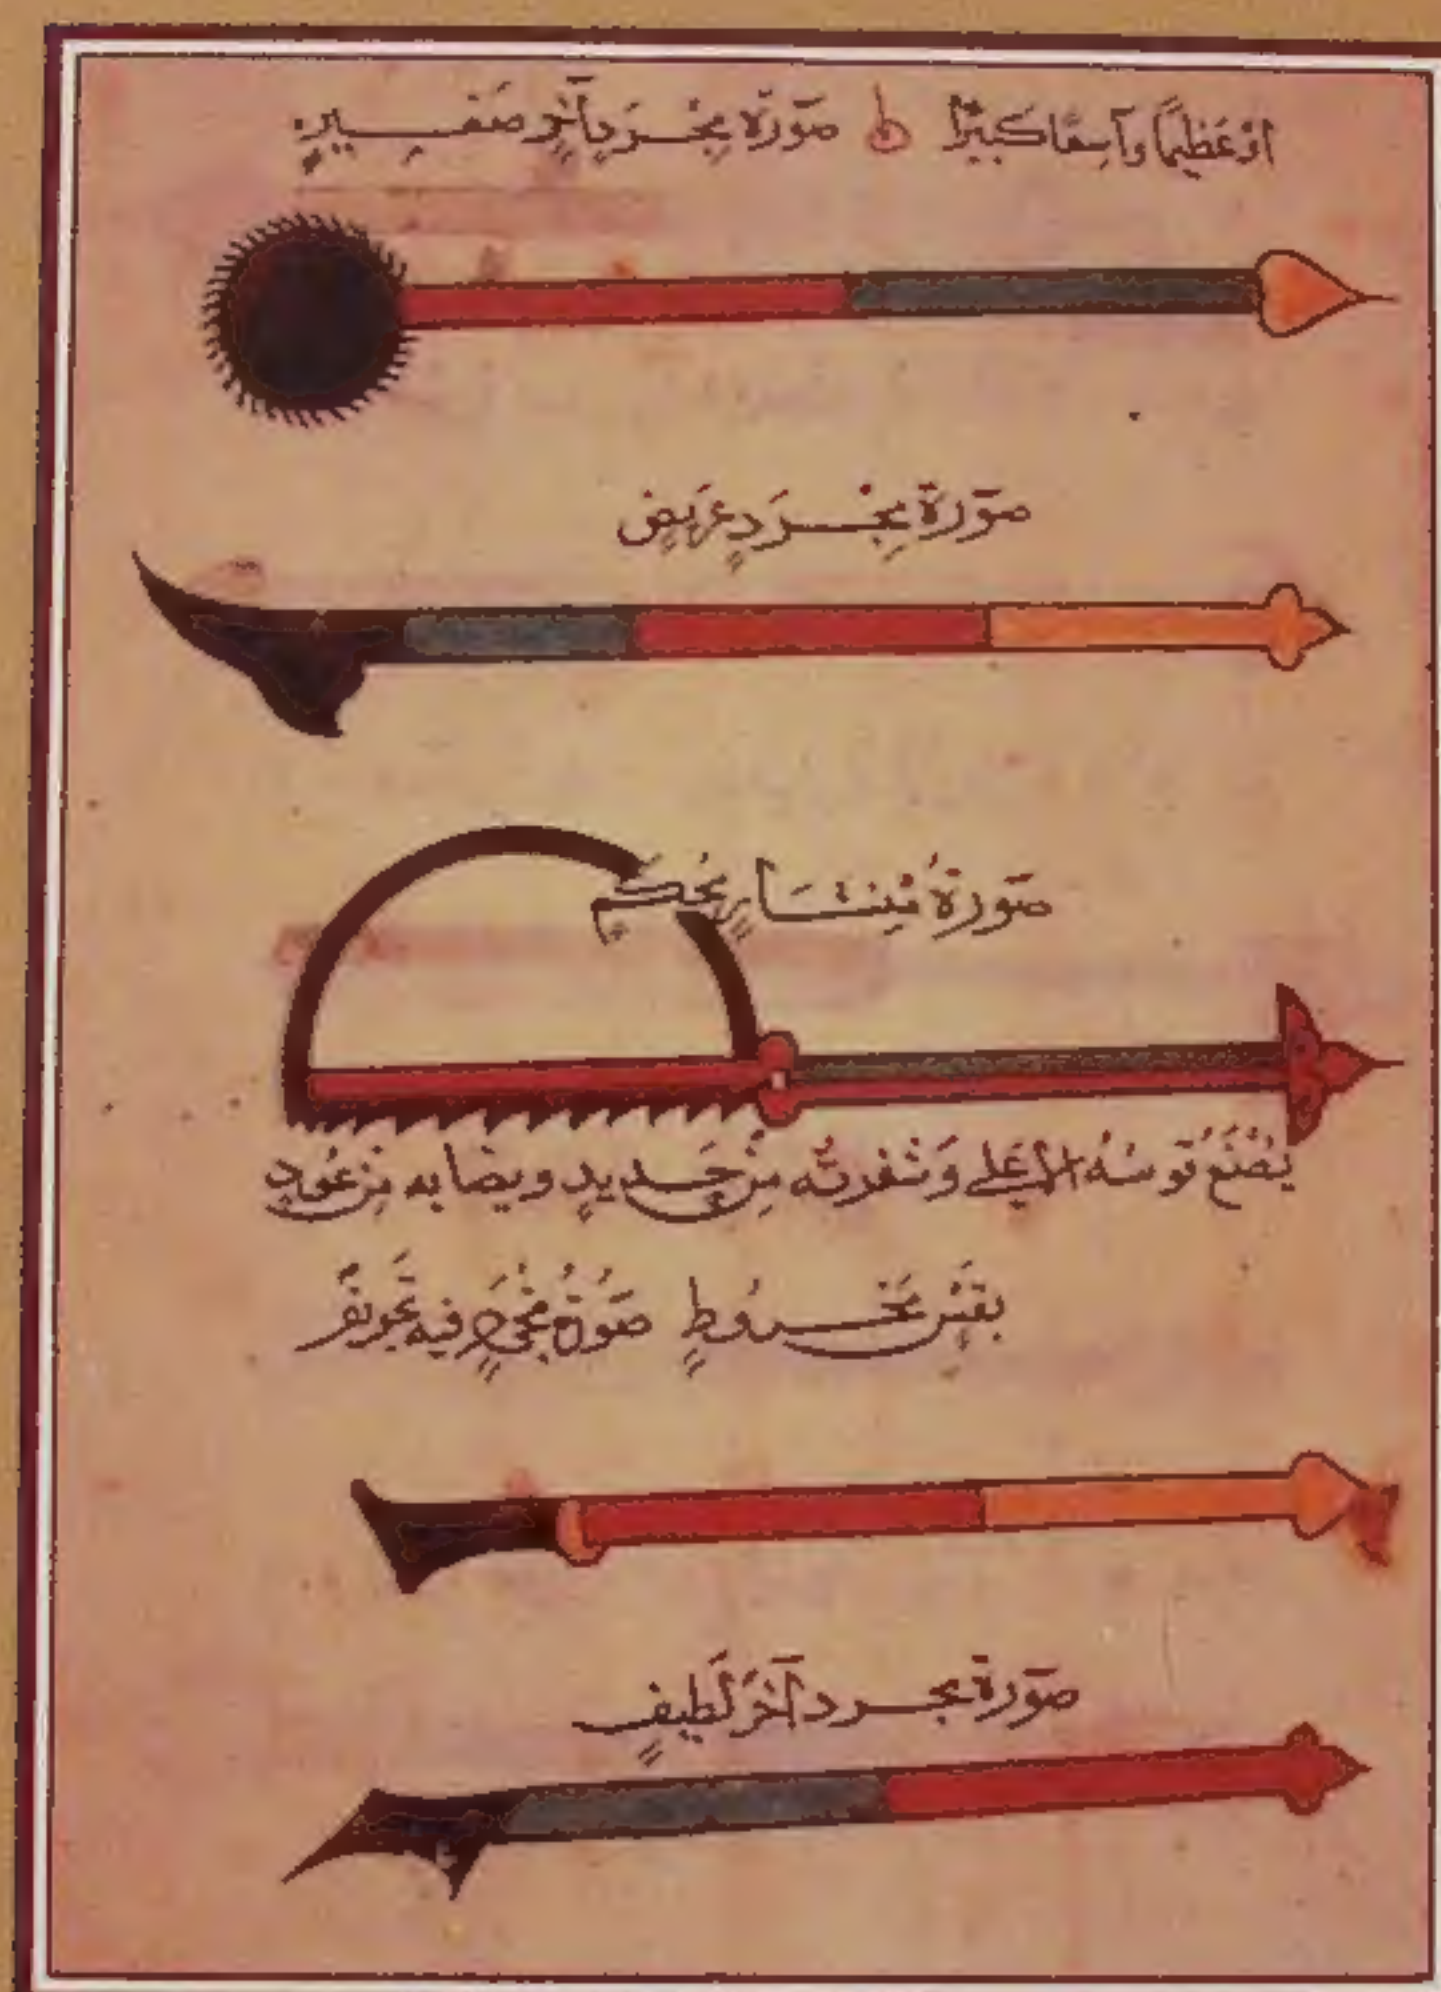 اَوْ عَظِيمًا وَاسِعًا كَبِيرًا صُورَةُ مِجْرَدٍ آخَرَ صَغِيرٍ
صُورَة مِجْرَدٍ عَرِيضٍ
صُورَةُ مِنشَارٍ مُحكَمٍ
يُصْنَع قَوسُهُ الاعلي وَشفرتُه مِنْ حَدِيدٍ ونصابه مِن عُودِ
بقسٍ مخروُطٍ صُورَةُ مجردٍ فيه تجويف
صُورة مجرد آخَر لَطِيفٍ